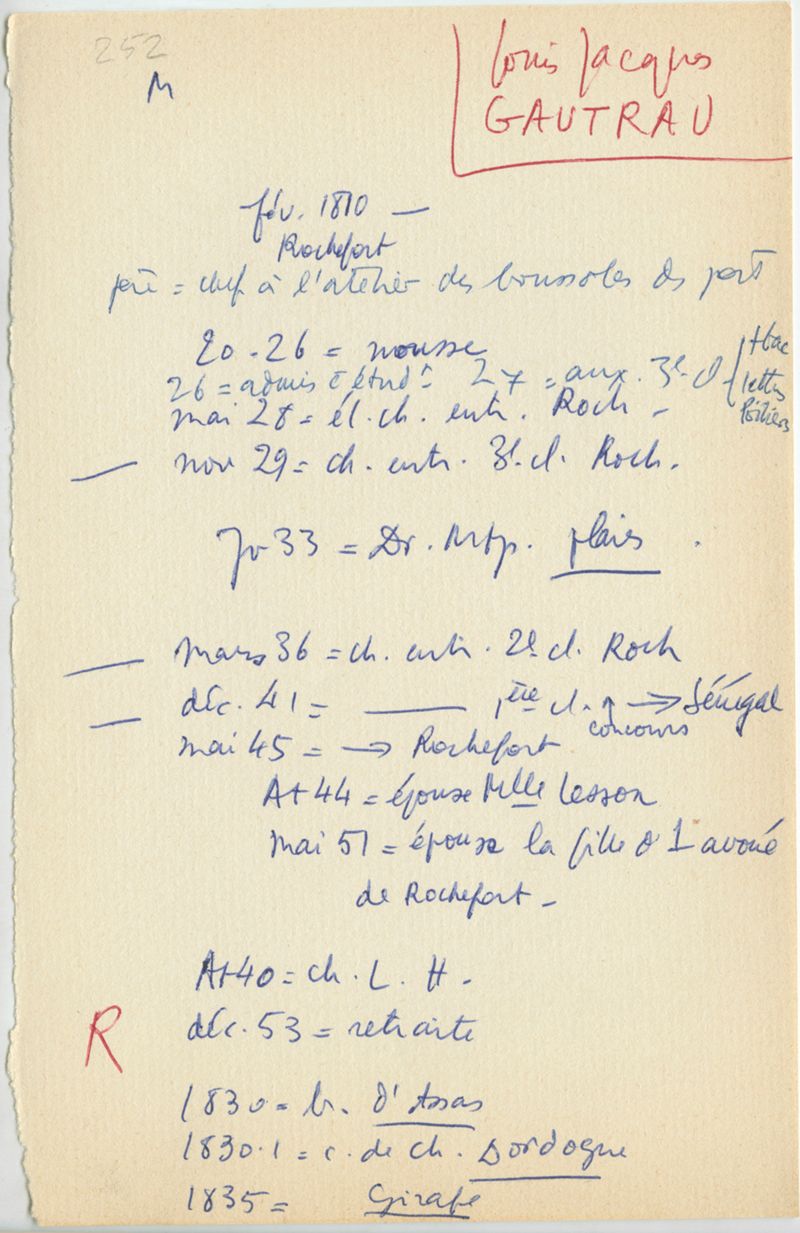 252
M
Louis Jacques
GAUTRAU
fév. 1810 —
Rochefort
père = chef à l'atelier des boussoles du port
20-26 = mousse
26 = admis à étud. 27 = aux. 3e cl
+ bac
lettres
Poitiers
mai 28 = él. ch. entr. Roch -
— nov 29 = ch. entr. 3e cl. Roch.
Jv 33 = Dr. Mtp. plaies .
— mars 36 = ch. entr. 2e cl. Roch
— déc. 41 = —— 1ère cl. ↑ → Sénégal
concours
mai 45 = → Rochefort
At 44 = épouse Mlle Lesson
mai 51 = épouse la fille d'1 avoué
de Rochefort -
At 40 = ch. L. H.
R
déc. 53 = retraite
1830 = b. d'Assas
1830.1 = c. de ch. Dordogne
1835 = Girafe